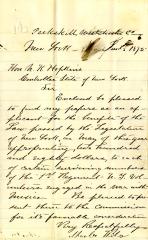 Peekskill, Westchester Co
New York Jan 1872
Hon. N. K. Hopkins
Comptroller State of New York
Sir
Enclosed be pleased
to find my papers as an ap-
plicant for the benefits of the
Law passed by the Legislature
of New York, in May
appropriating two hundred
and eighty dollars, to each
of certain surviving
of the 1st Regiment N. Y. Vol-
unteers engaged in the war with
Mexico. Be pleased to pre-
sent them to the Commission
for its favorable consideration
Very Respectfully
Charles